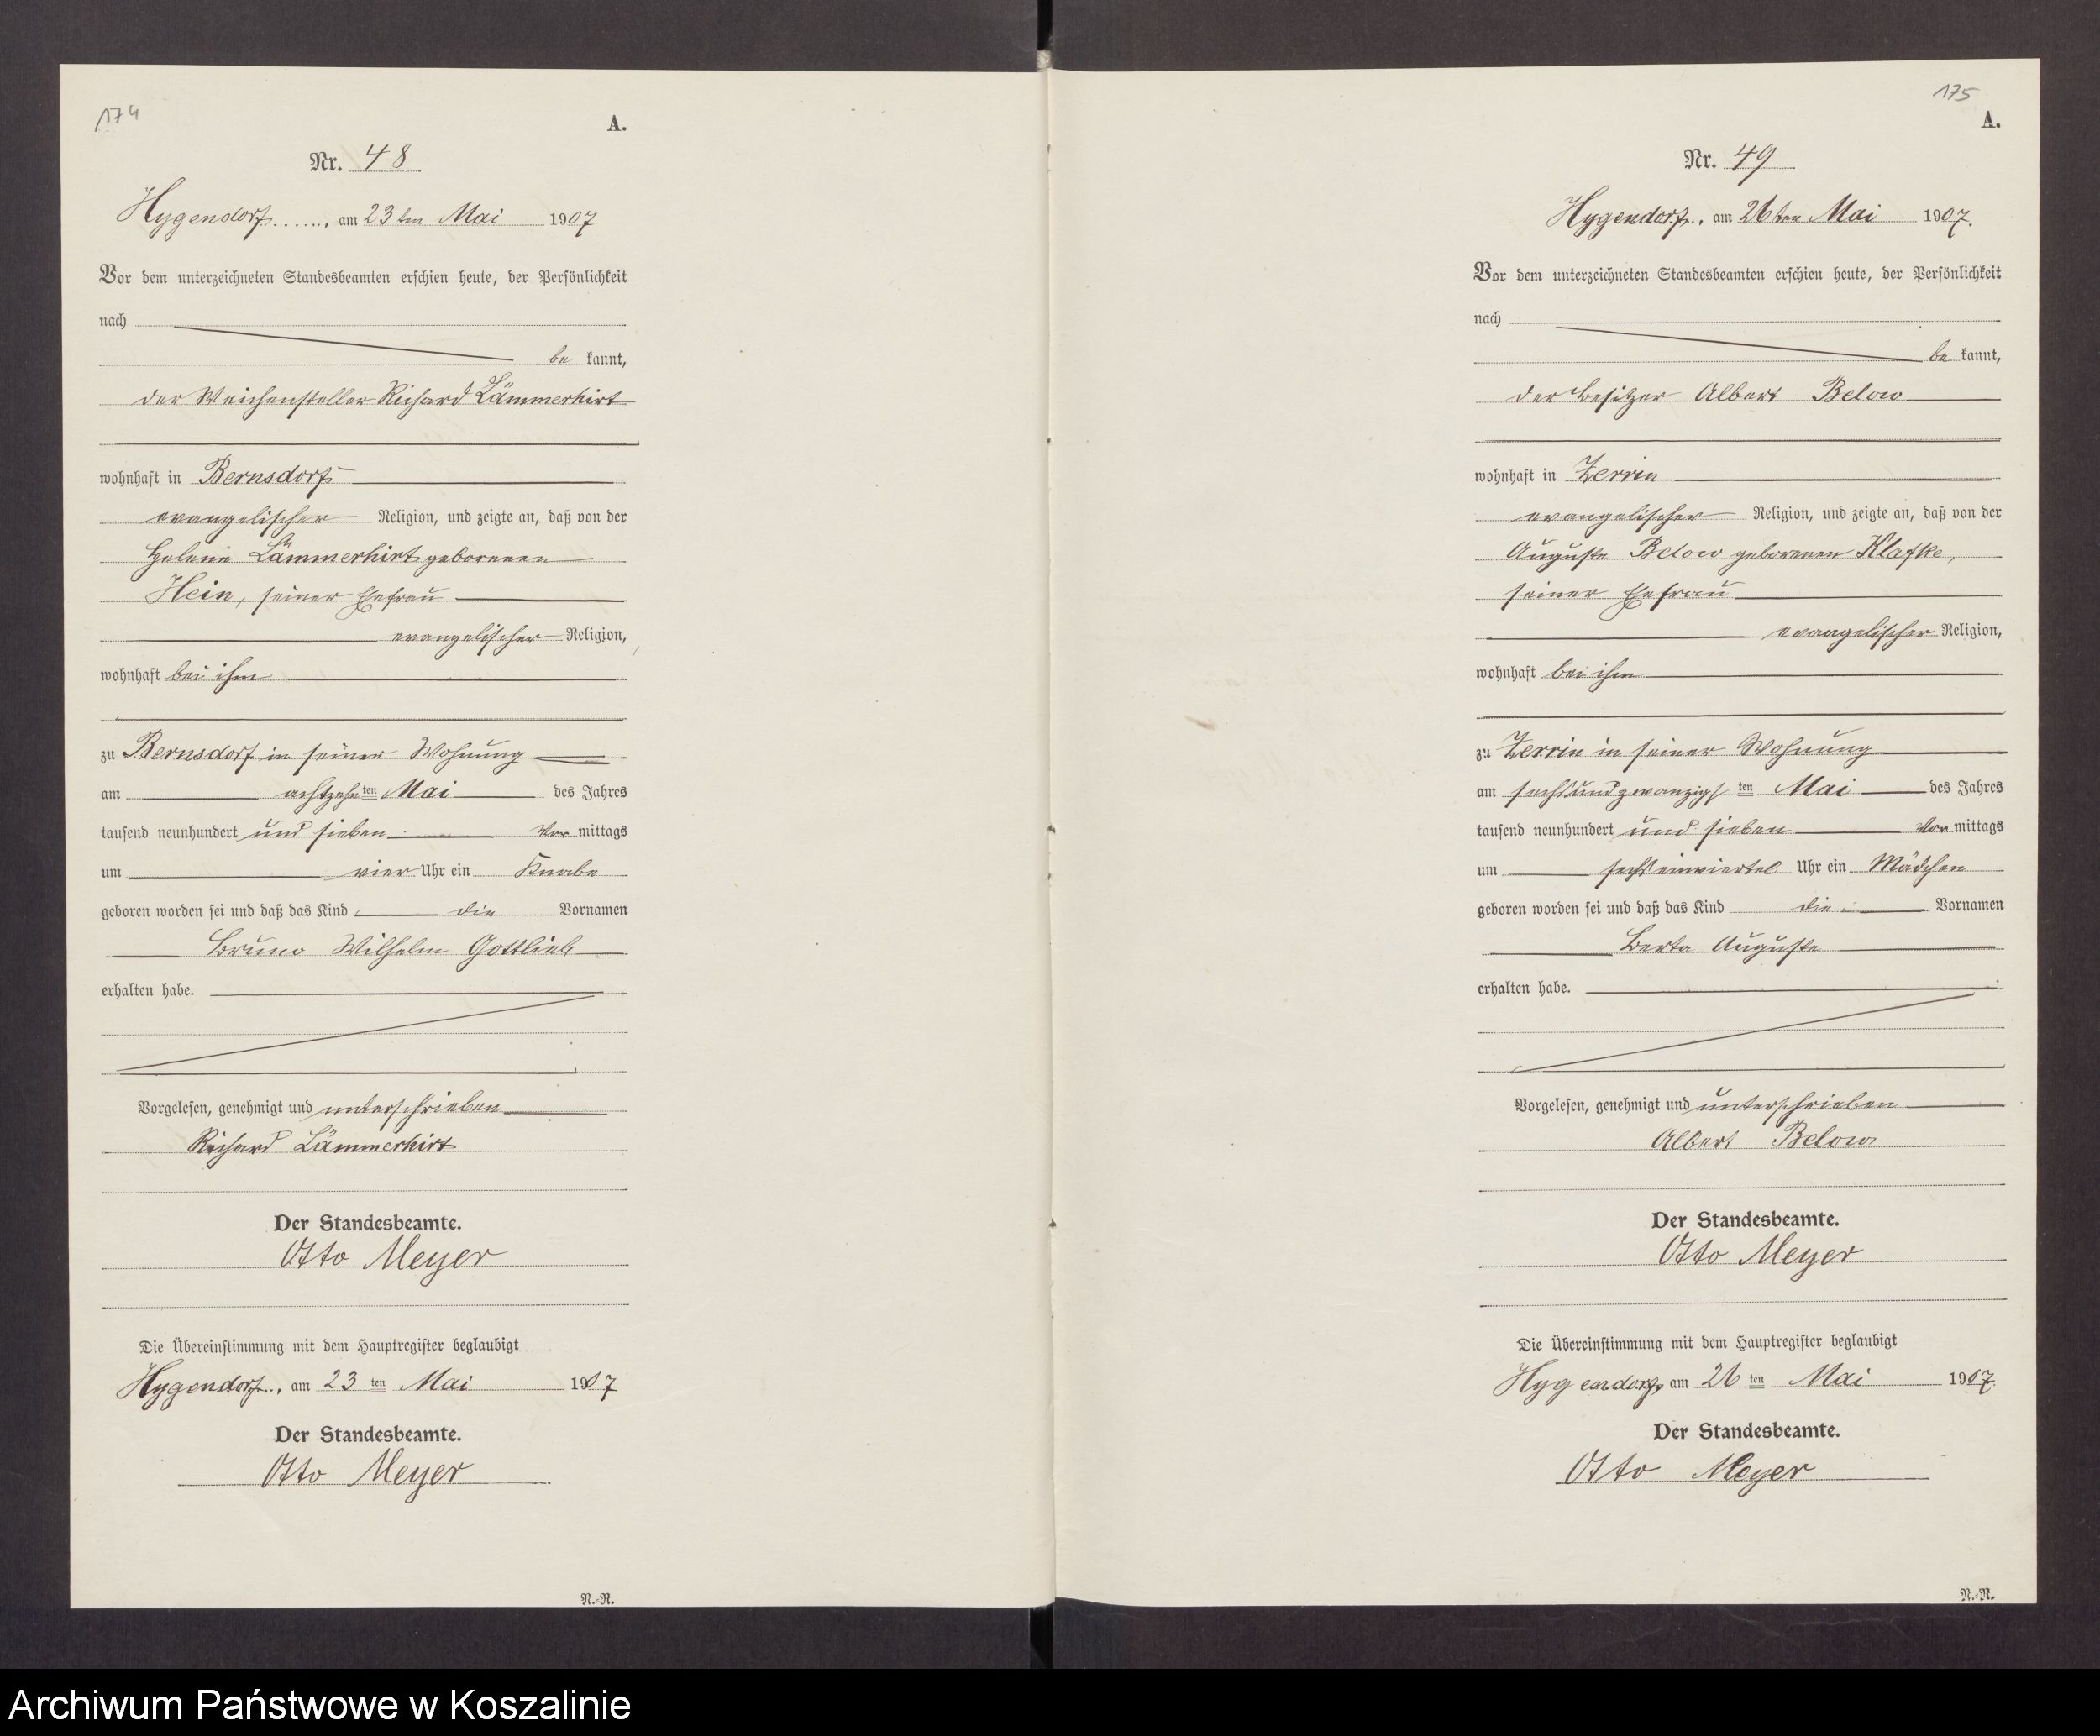 174
A.
Nr. 48
Hygendorf......, am 23ten Mai 1907
Vor dem unterzeichneten Standesbeamten erschien heute, der Persönlichkeit
nach
be kannt,
der Weichensteller Richard Lämmerhirt
wohnhaft in Bernsdorf
evangelischer Religion, und zeigte an, daß von der
Helene Lämmerhirt geborenen
Hein, seiner Ehefrau
evangelischer Religion,
wohnhaft bei ihm
zu Bernsdorf in seiner Wohnung
am achtzehn ten Mai des Jahres
tausend neunhundert und sieben Vor mittags
um vier Uhr ein Knabe
geboren worden sei und daß das Kind die Vornamen
Bruno Wilhelm Gottlieb
erhalten habe.
Vorgelesen, genehmigt und unterschrieben
Richard Lämmerhirt
Der Standesbeamte.
Otto Meyer
Die Übereinstimmung mit dem Hauptregister beglaubigt
Hygendorf..., am 23 ten Mai 1907
Der Standesbeamte.
Otto Meyer
N.=N.
175
A.
Nr. 49
Hygendorf.., am 26ten Mai 1907.
Vor dem unterzeichneten Standesbeamten erschien heute, der Persönlichkeit
nach
be kannt,
der Besitzer Albert Below
wohnhaft in Zerrin
evangelischer Religion, und zeigte an, daß von der
Auguste Below geborenen Klafke,
seiner Ehefrau
evangelischer Religion,
wohnhaft bei ihm
zu Zerrin in seiner Wohnung
am sechsundzwanzigs ten Mai des Jahres
tausend neunhundert und sieben Vor mittags
um sechs einviertel Uhr ein Mädchen
geboren worden sei und daß das Kind die Vornamen
Berta Auguste
erhalten habe.
Vorgelesen, genehmigt und unterschrieben
Albert Below
Der Standesbeamte.
Otto Meyer
Die Übereinstimmung mit dem Hauptregister beglaubigt
Hygendorf, am 26 ten Mai 1907.
Der Standesbeamte.
Otto Meyer
N.=N.
Archiwum Państwowe w Koszalinie